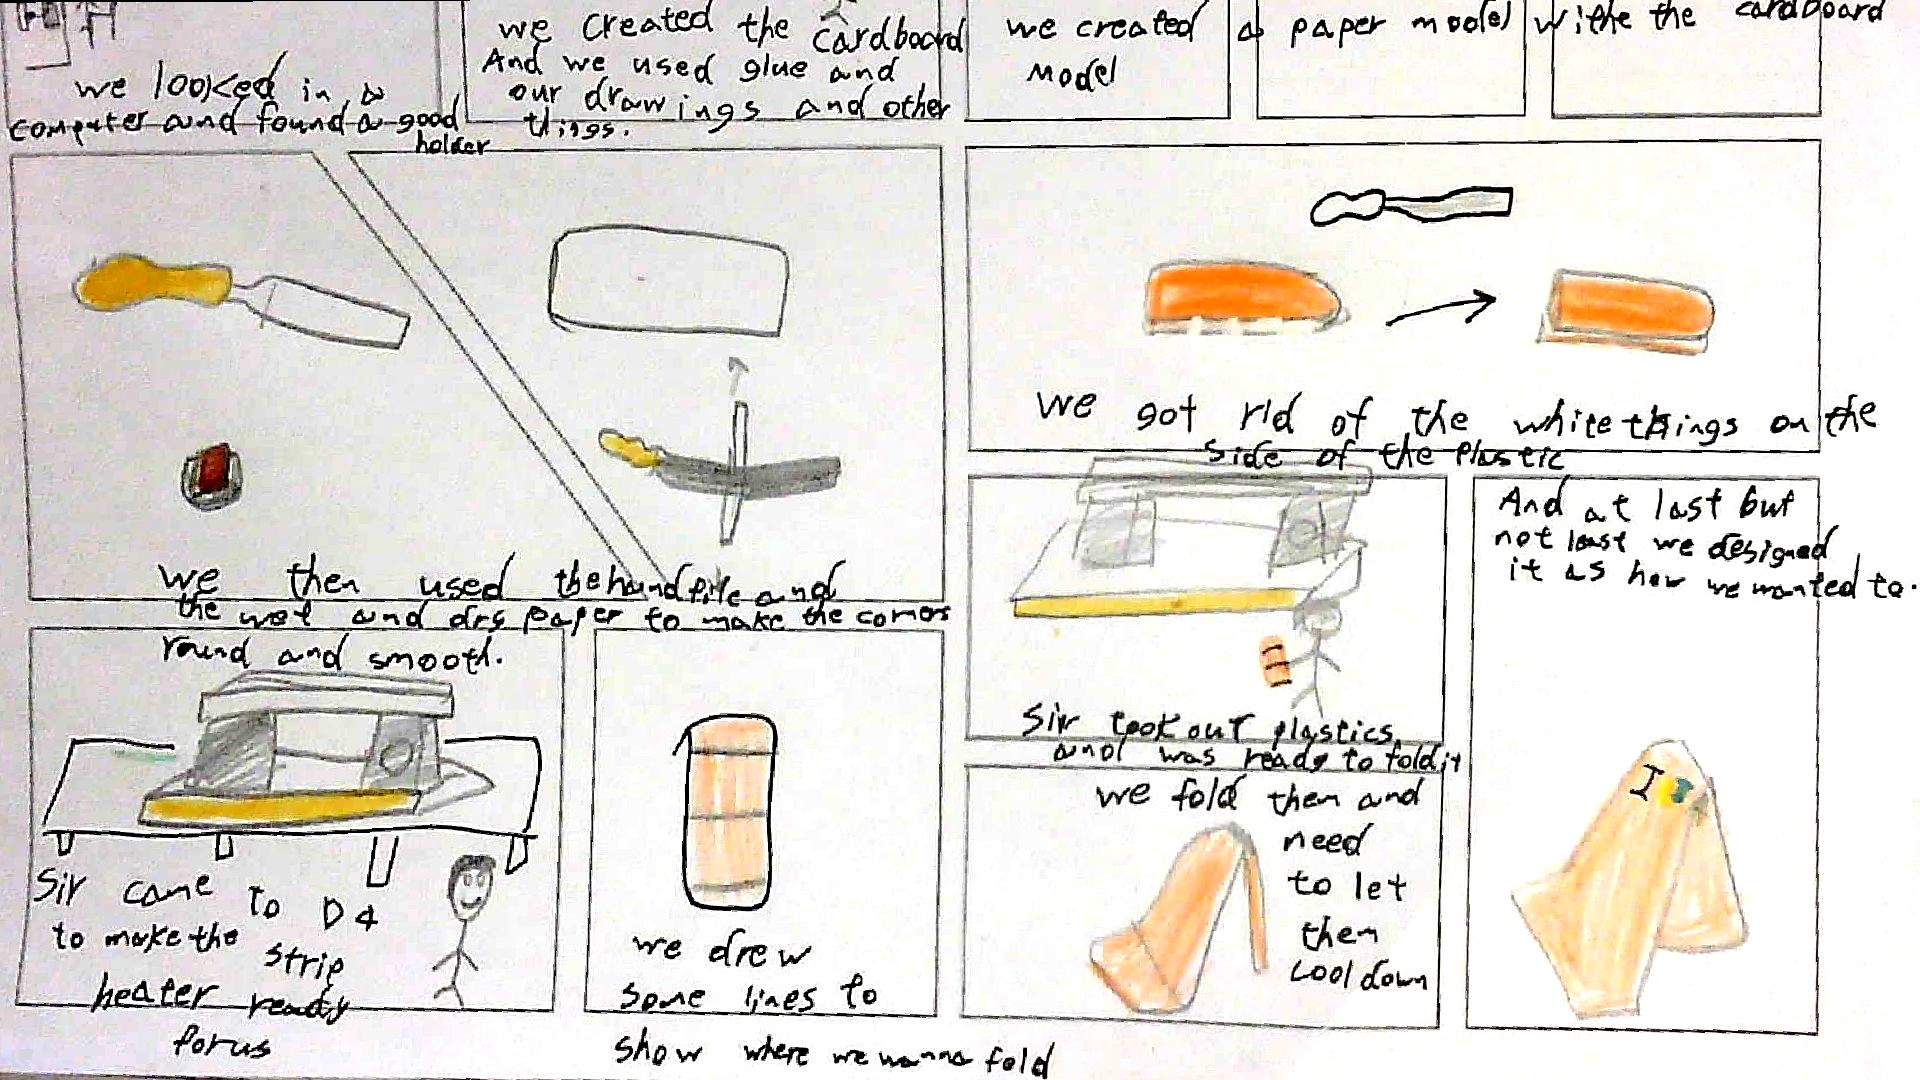 we looked in a
computer and found a good
holder
we created the cardboard
And we used glue and
our drawings and other
things.
we created a paper model withe the cardboard
Model
we then used the hand file and
the wet and dry paper to make the corners
round and smooth.
we got rid of the white things on the
side of the plastic
Sir came to D4
to make the strip
heater ready
for us
we drew
some lines to
show where we wanna fold
Sir took out plastics
and was ready to fold it
we fold them and
need
to let
them
cool down
And at last but
not least we designed
it as how we wanted to.